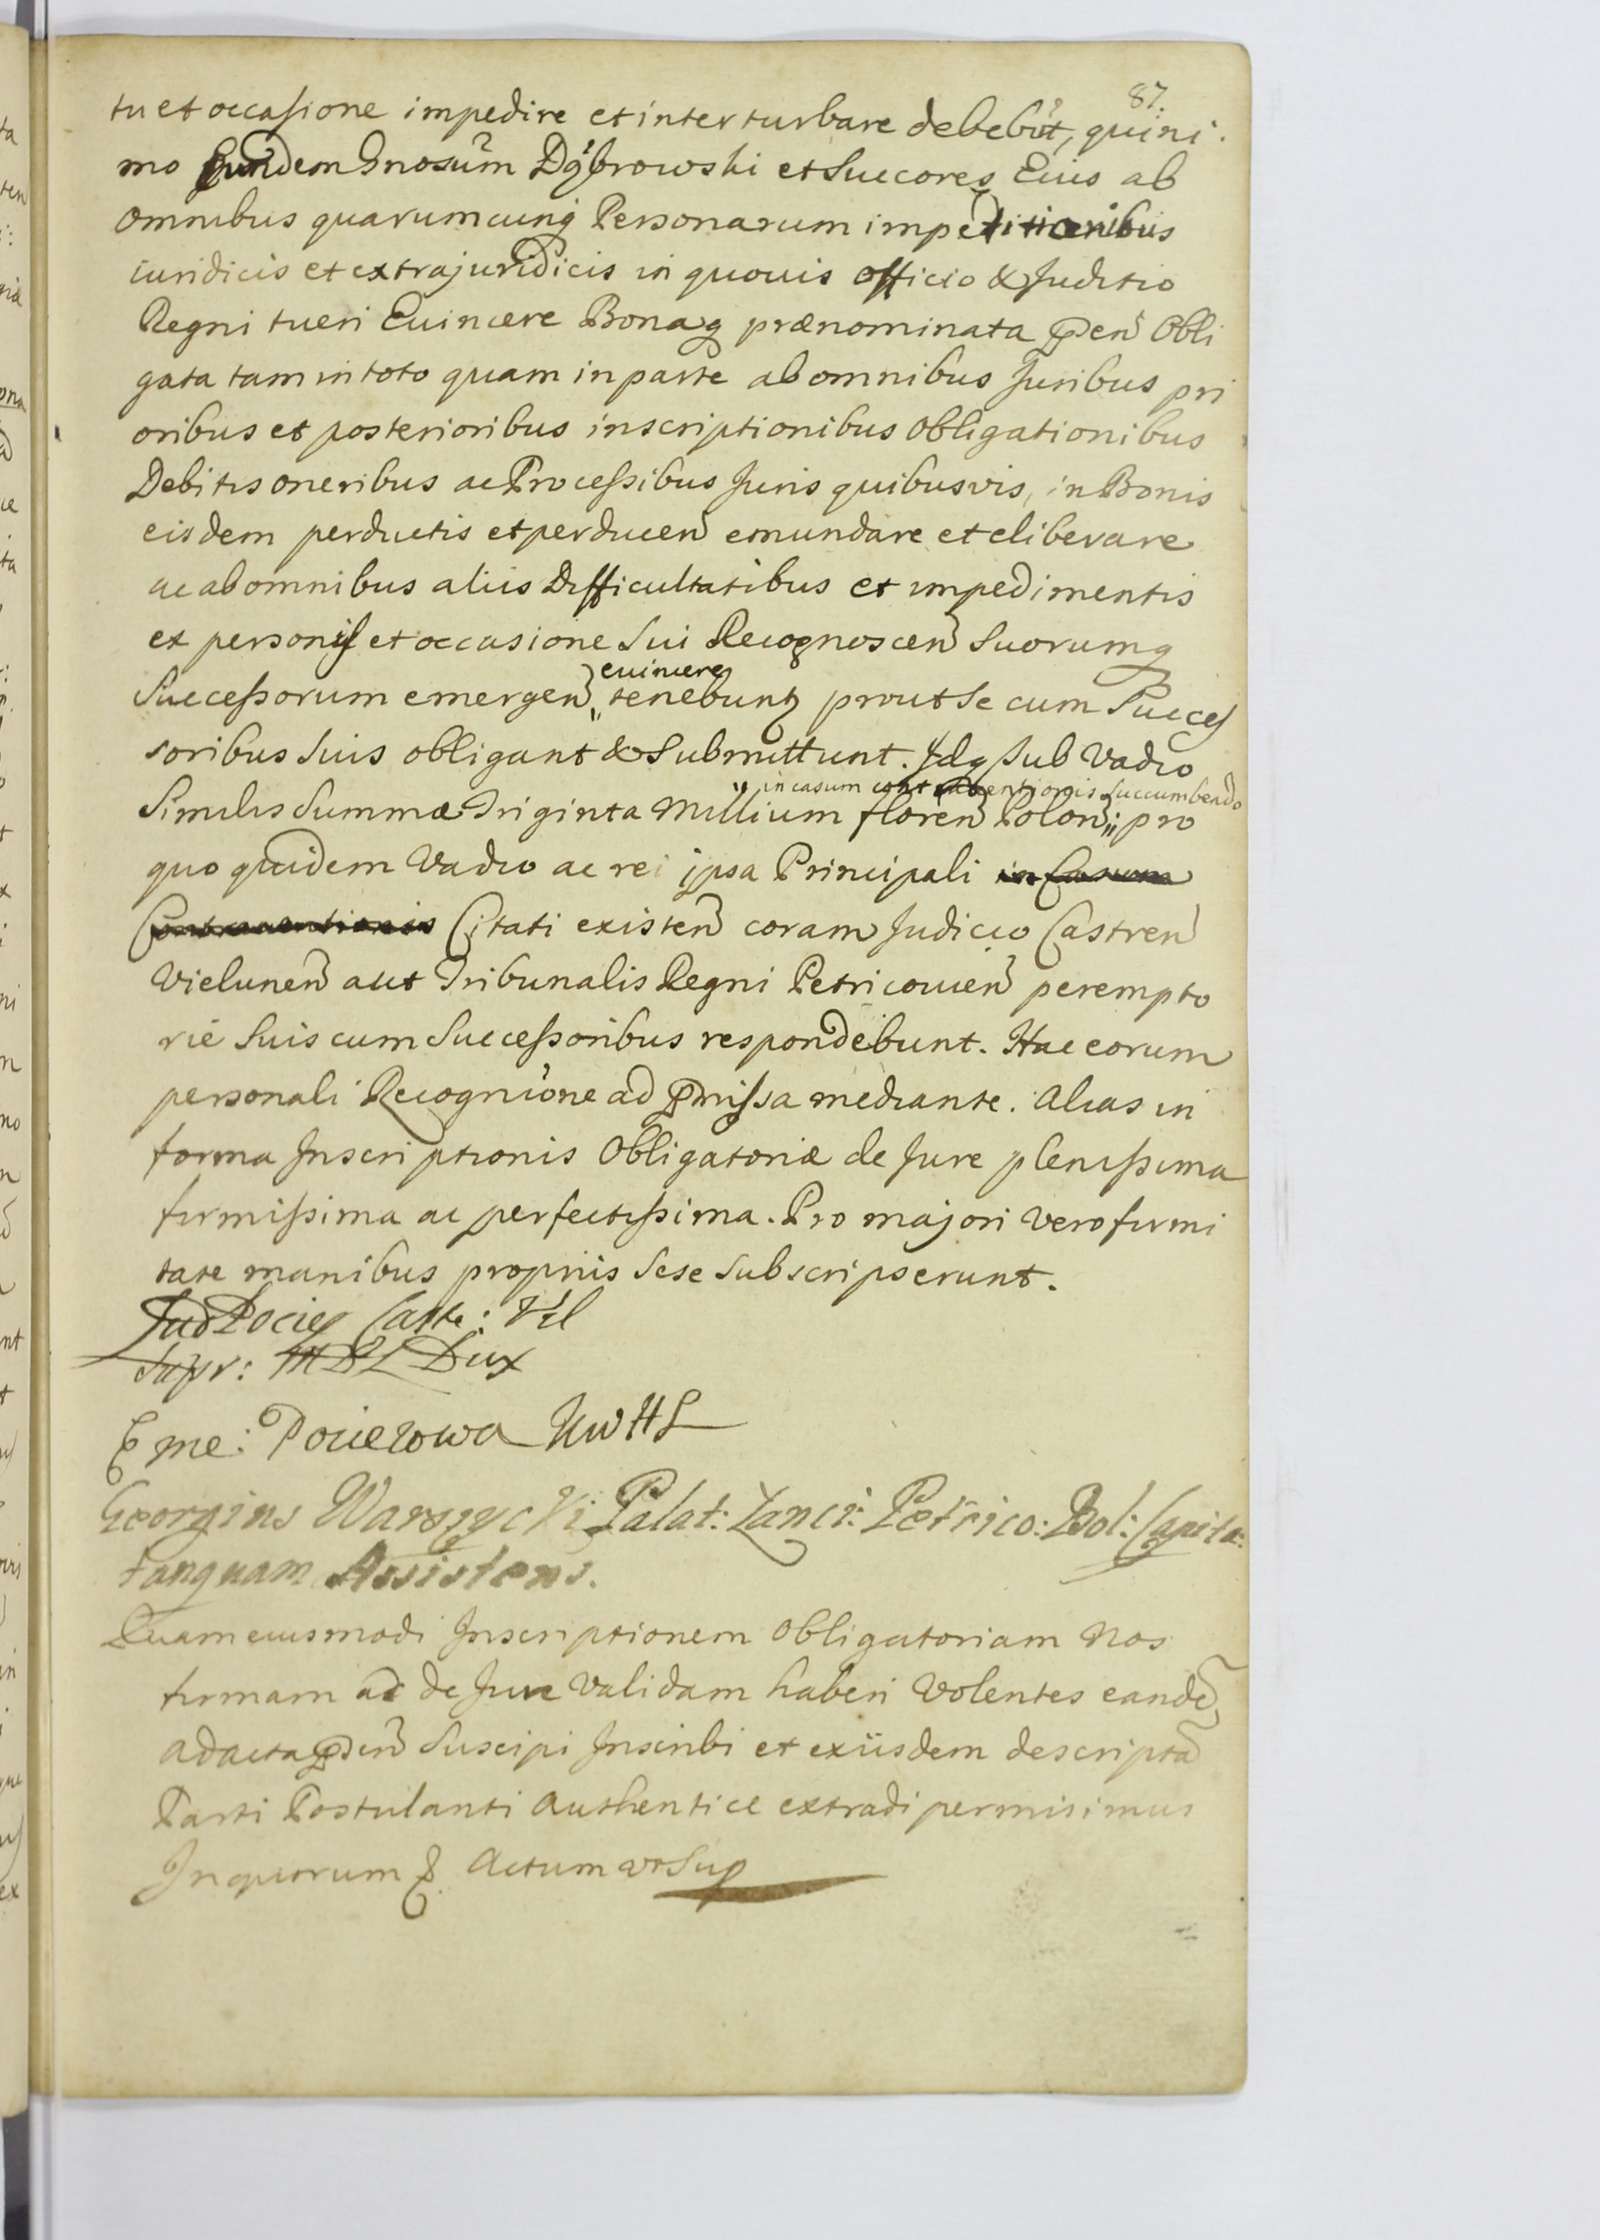 87.
tu et occasione impedire et interturbare debebūt, quini
mo Eundem Gnosum Dąbrowski et Succores Eius ab
omnibus quarumcunq Personarum impetitionibus
iuridicis et extrajuridicis in quovis officio & Juditio
Regni tueri Euincere Bonaq prænominata pñ Obli
gata tam in toto quam in parte ab omnibus Juribus pri
oribus et posterioribus inscriptionibus Obligationibus
Debitis oneribus ac Processibus Juris quibusvis, in Bonis
eisdem perductis et perducen emundare et eliberare
ac ab omnibus aliis Difficultatibus et impedimentis
ex personis et occasione Sui Recognoscen Suorumq
Successorum emergen, euincere tenebunt prout Se cum Succes
soribus Suis obligant & Submittunt. Idq Sub Vadio
in casum contrauentionis succumbendo
Similis Summæ Triginta Millium floren Polon: pro
quo quidem Vadio ac rei ipsa Principali in Casum
Contrauentionis Citati existen coram Judicio Castren
Vielunen aut Tribunalis Regni Petricouien perempto
rie Suis cum Successoribus respondebunt. Hac eorum
personali Recognione ad pmissa mediante. Alias in
forma Inscriptionis Obligatoriæ de Jure plenissima
firmissima ac perfectissima. Pro majori vero firmi
tate manibus propriis Sese Subscripserunt.
Lud Pociey Caste: Vil
Supr: M D L Dux
Eme: Pocieiowa
Georgius Warszycki Palat: Lanci: Petrico: Bol: Capita:
tanquam Assistens.
Quam eiusmodi Inscriptionem Obligatoriam Nos
firmam ac de Jure Validam haberi Volentes eandē
ad acta pñ Suscipi Inscribi et exiisdem descriptā
Parti Postulanti Authentice extradi permisimus
In quorum & Actum ut Sup